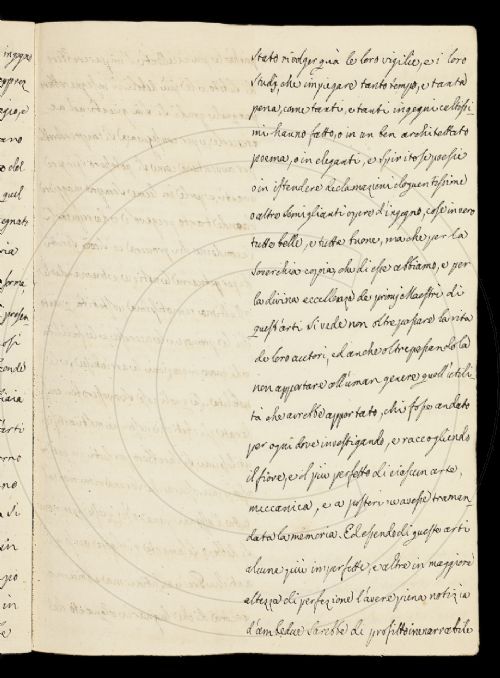 stato rivolger quà le loro vigilie, e i loro
studj, che impiegare tanto tempo, e tanta
pena, come tanti, e tanti ingegni celtissi-
mi hanno fatto, o in un ben architettato
poema, o in eleganti, e spiritose poesie
o in istendere declamazioni eloquentissime
o altro somiglianti opre d'ingegno, cose in vero
tutte belle, e tutte buone, ma che per la
soverchia copia, che di esse abbiamo, e per
la divina eccellenza de primj Maestri di
quest'arti si vede non oltrepassare la vita
de loro autori, ed anche oltrepassandola
non apportare all'uman genere quell'utili-
tà che avrebbe apportato, chi fosse andato
per ogni dove investigando, e raccogliendo
il fiore, e il più perfetto di ciascun arte,
meccanica, e a posteri n'avesse traman-
data la memoria. Ed essendo di queste arti
alcune più imperfette, e altre in maggiore
altezza di perfezione l'avere piena notizia
d'ambedue sarebbe di profitto inenarrabile